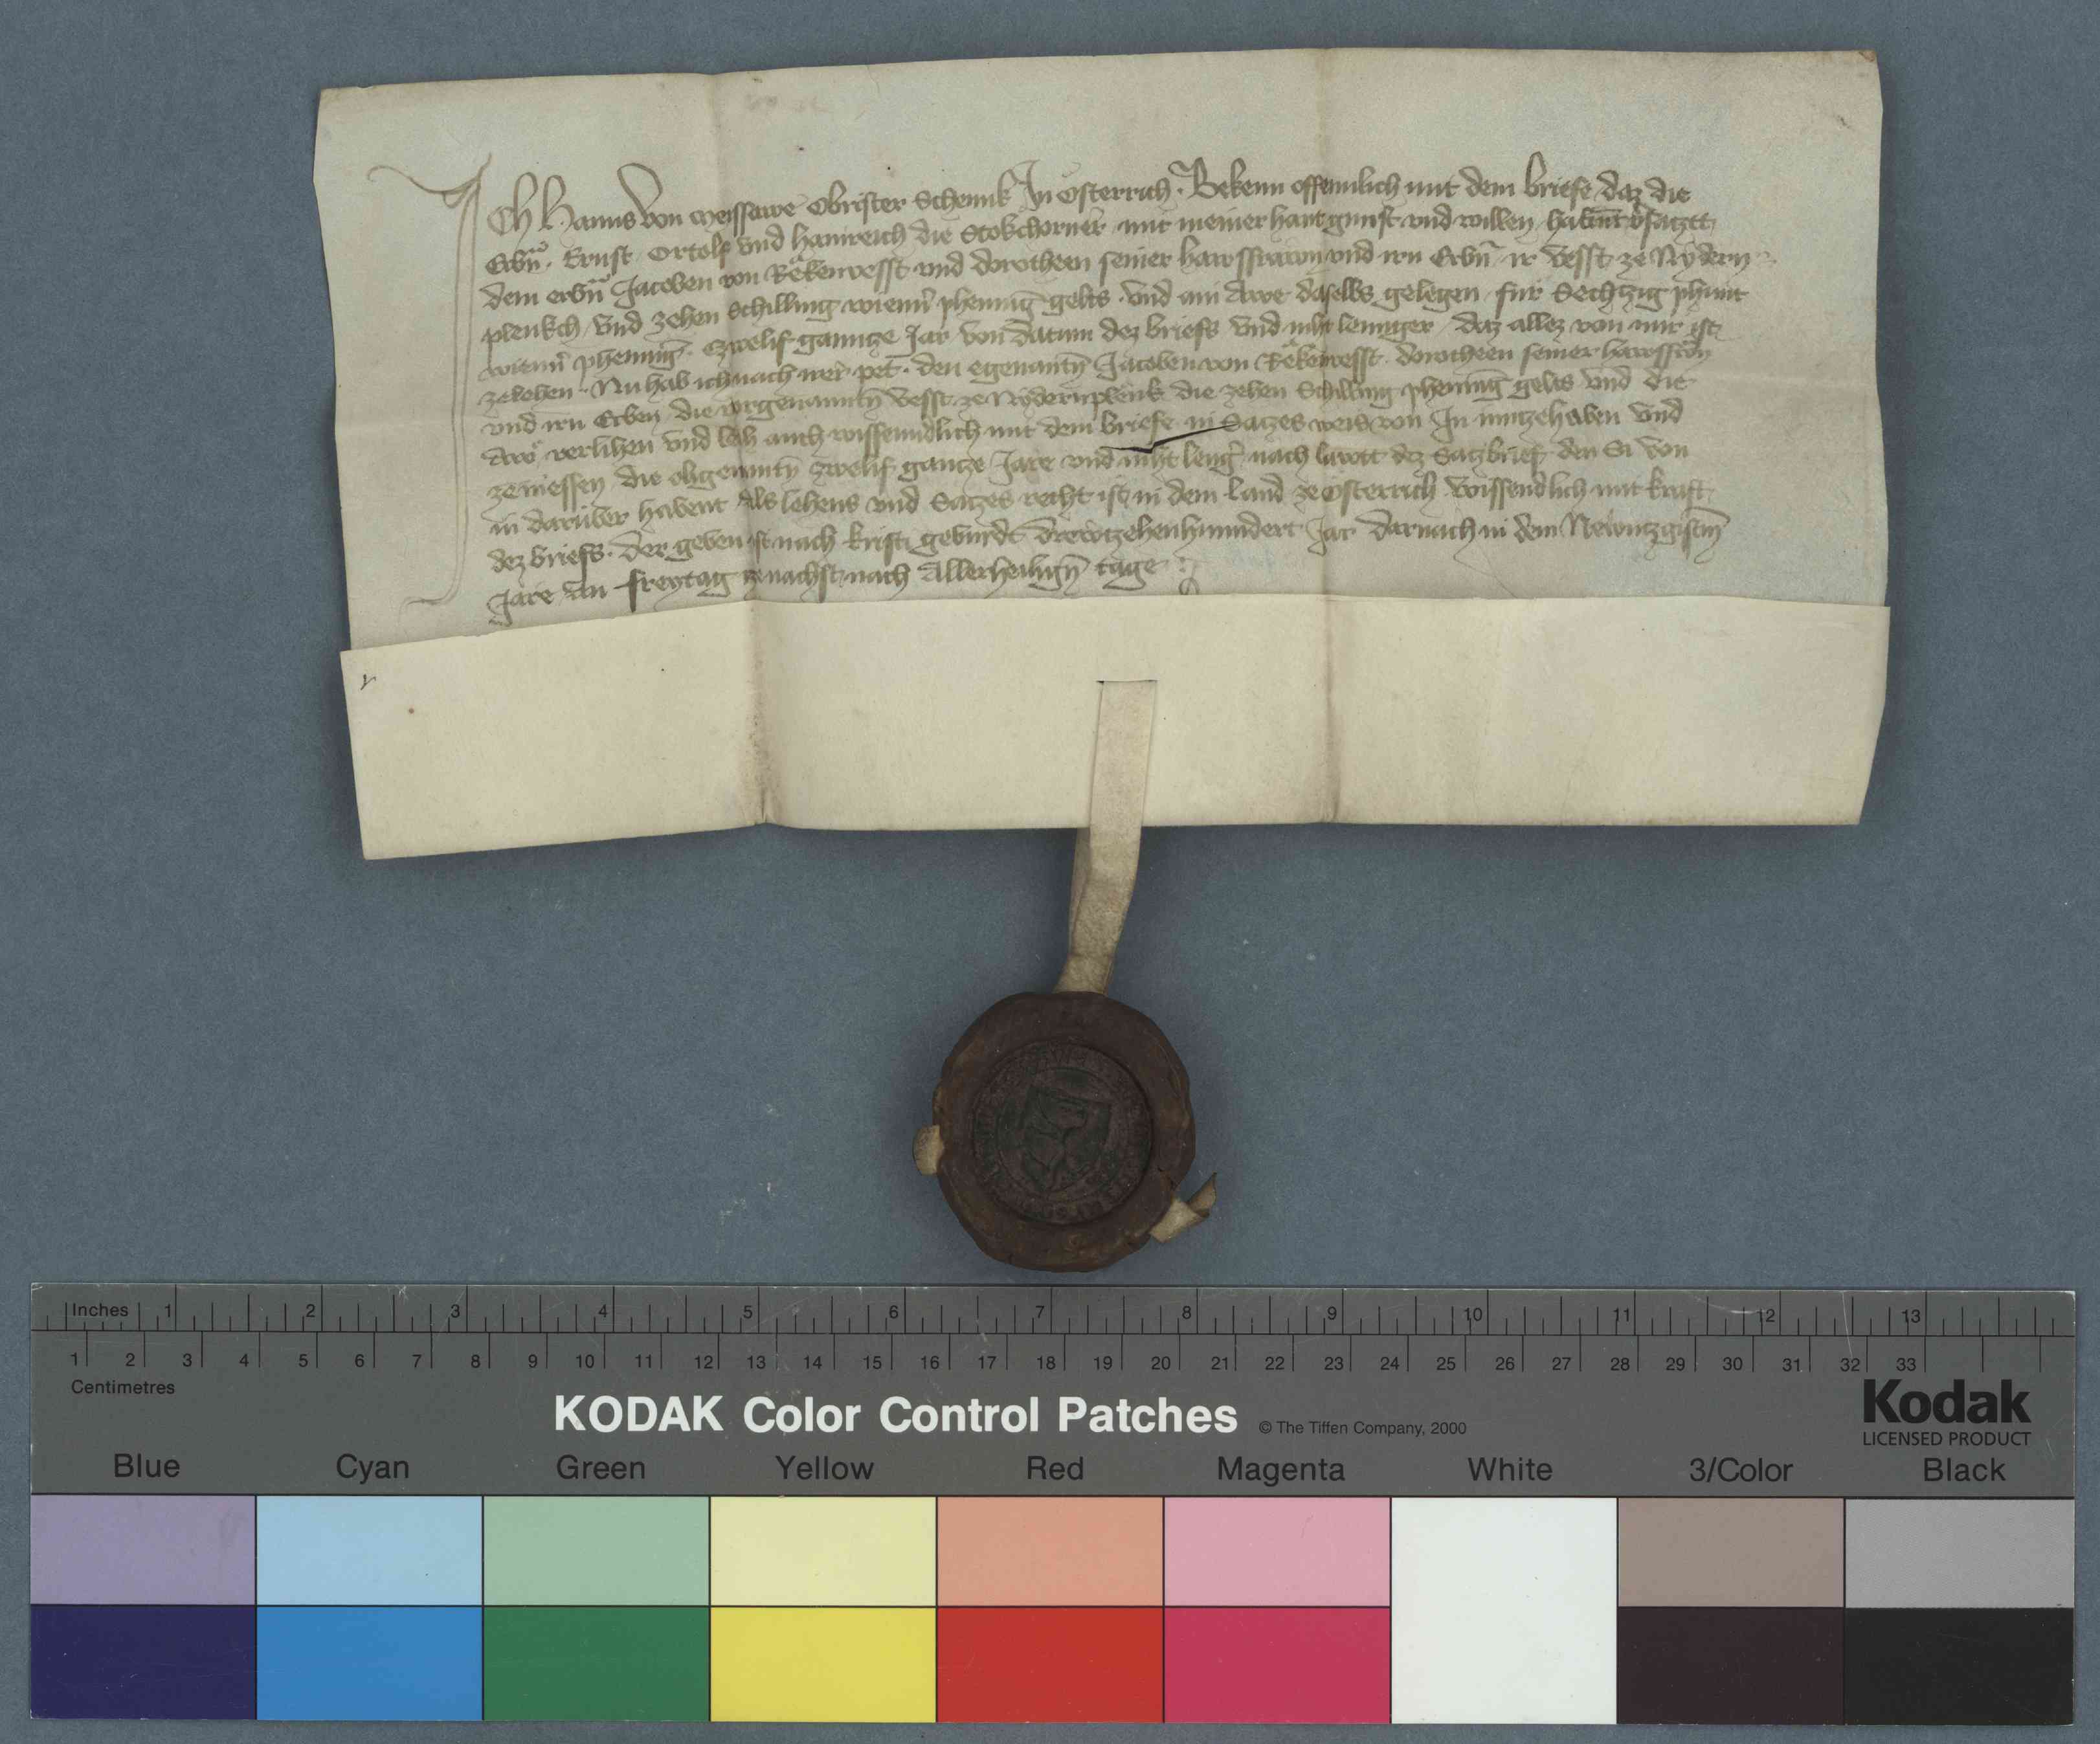 Ich Hanns von Meissawe Obrister Schennk In Osterrich. Bekenn offennlich mit dem briefe, daz die
Erbn̄. Ernst Ortolf vnd hainreich die Stokchorner mit meiner hant gunst vnd willen habent v̓saczt
dem erbn̄ Jacoben von Rekenvesst vnd dorotheen seiner hawsfrawn vnd irn Erbn̄ ir vesst ze Nydern
plenkch vnd zehen Schilling wienn̓ phenniḡ gelts. vnd ain Awe daselbs gelegen für Sechtzig phunt
wienn̓ phenniḡ. Czwelif ganntze Jar von datum dez briefs vnd niht lennger, daz allez von mir ist
ze lehen. Nu hab ich nach irer pet. den egenantn̄ Jacoben von Rekenvesst. dorotheen seiner hawsfrōn
vnd irn Erben die vorgenanntn̄ vesst ze Nydernplenk die zehen Schilling phenniḡ gelts vnd die
Aw verlihen vnd leih auch wissenndlich mit dem briefe in Satzes weis von In inntzehaben vnd
zeniessen die obgenantn̄ zwelif gantze Jare vnd niht leng̓ nach lawtt dez Satzbrief den Si von
in darüber habent Als lehens vnd Satzes recht ist in dem land ze Osterrich wissendlich mit kraft
dez briefs. Der geben ist nach kristi gebürde drewtzehenhundert Jar darnach in dem Newntzgistn̄
Jare An freytag ze nachst nach Allerheilign̄ tage
Inches 1 2 3 4 5 6 7 8 9 10 11 12 13
1 2 3 4 5 6 7 8 9 10 11 12 13 14 15 16 17 18 19 20 21 22 23 24 25 26 27 28 29 30 31 32 33
Centimetres
KODAK Color Control Patches © The Tiffen Company, 2000
Kodak
LICENSED PRODUCT
Blue Cyan Green Yellow Red Magenta White 3/Color Black